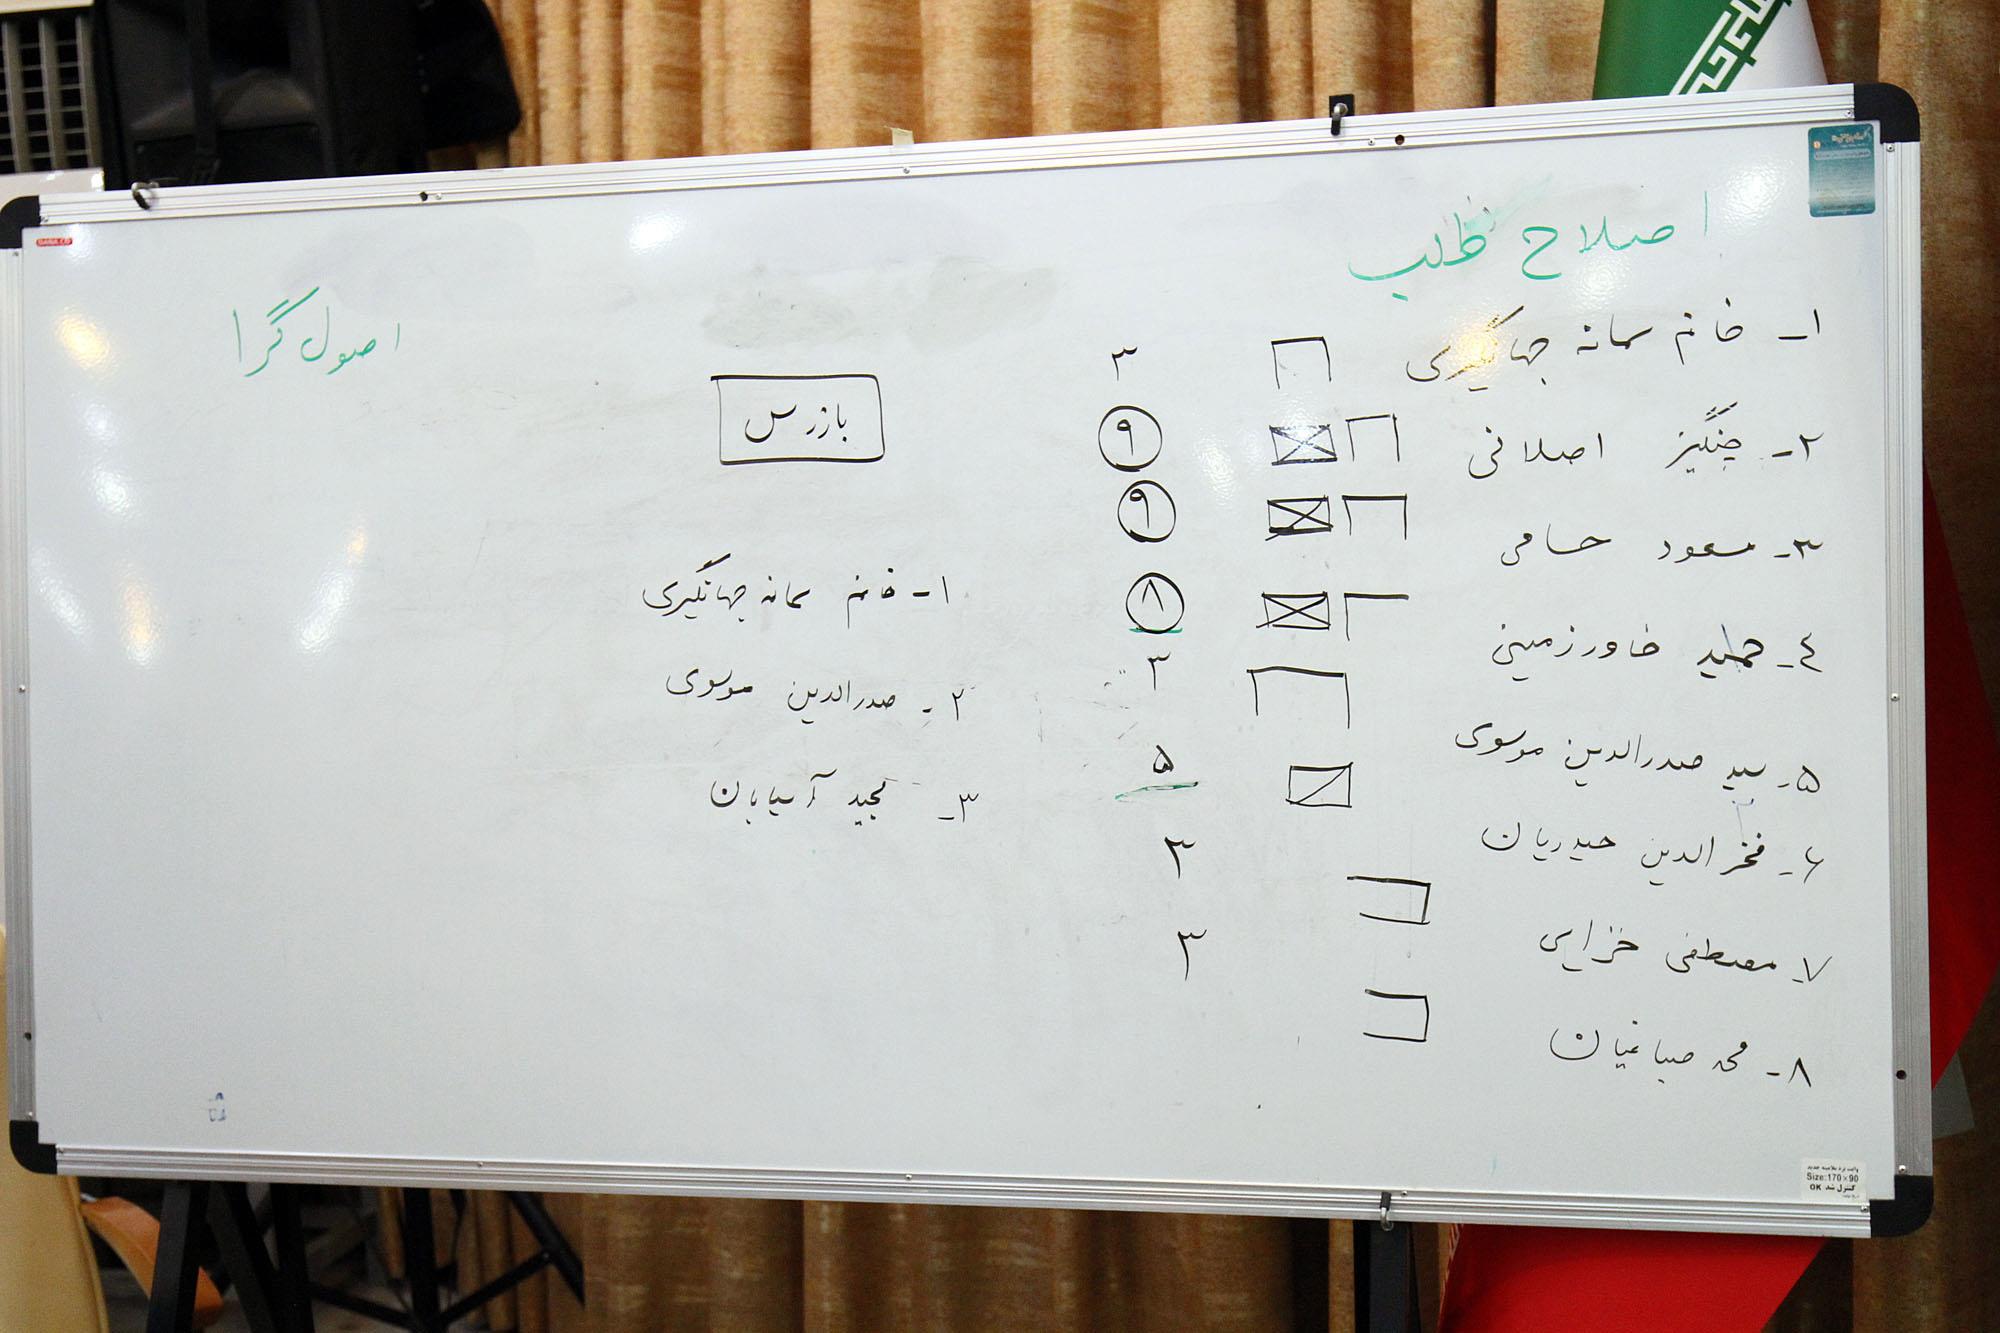 اصلاح طلب
۱- خانم سمانه جهانگیری
۳
۲- چنگیز اصلانی
۹
۳- مسعود حسامی
۹
۴- حمید خاورزمینی
۸
۵- سید صدرالدین موسوی
۳
۶- فخرالدین حیدریان
۵
۷- مصطفی خزایی
۳
۸- محمد صباغیان
۳
بازرس
۱- خانم سمانه جهانگیری
۲- صدرالدین موسوی
۳- مجید آسیابان
اصول گرا
وایت برد سلامینه جدید
Size:170×90
کنترل شد OK